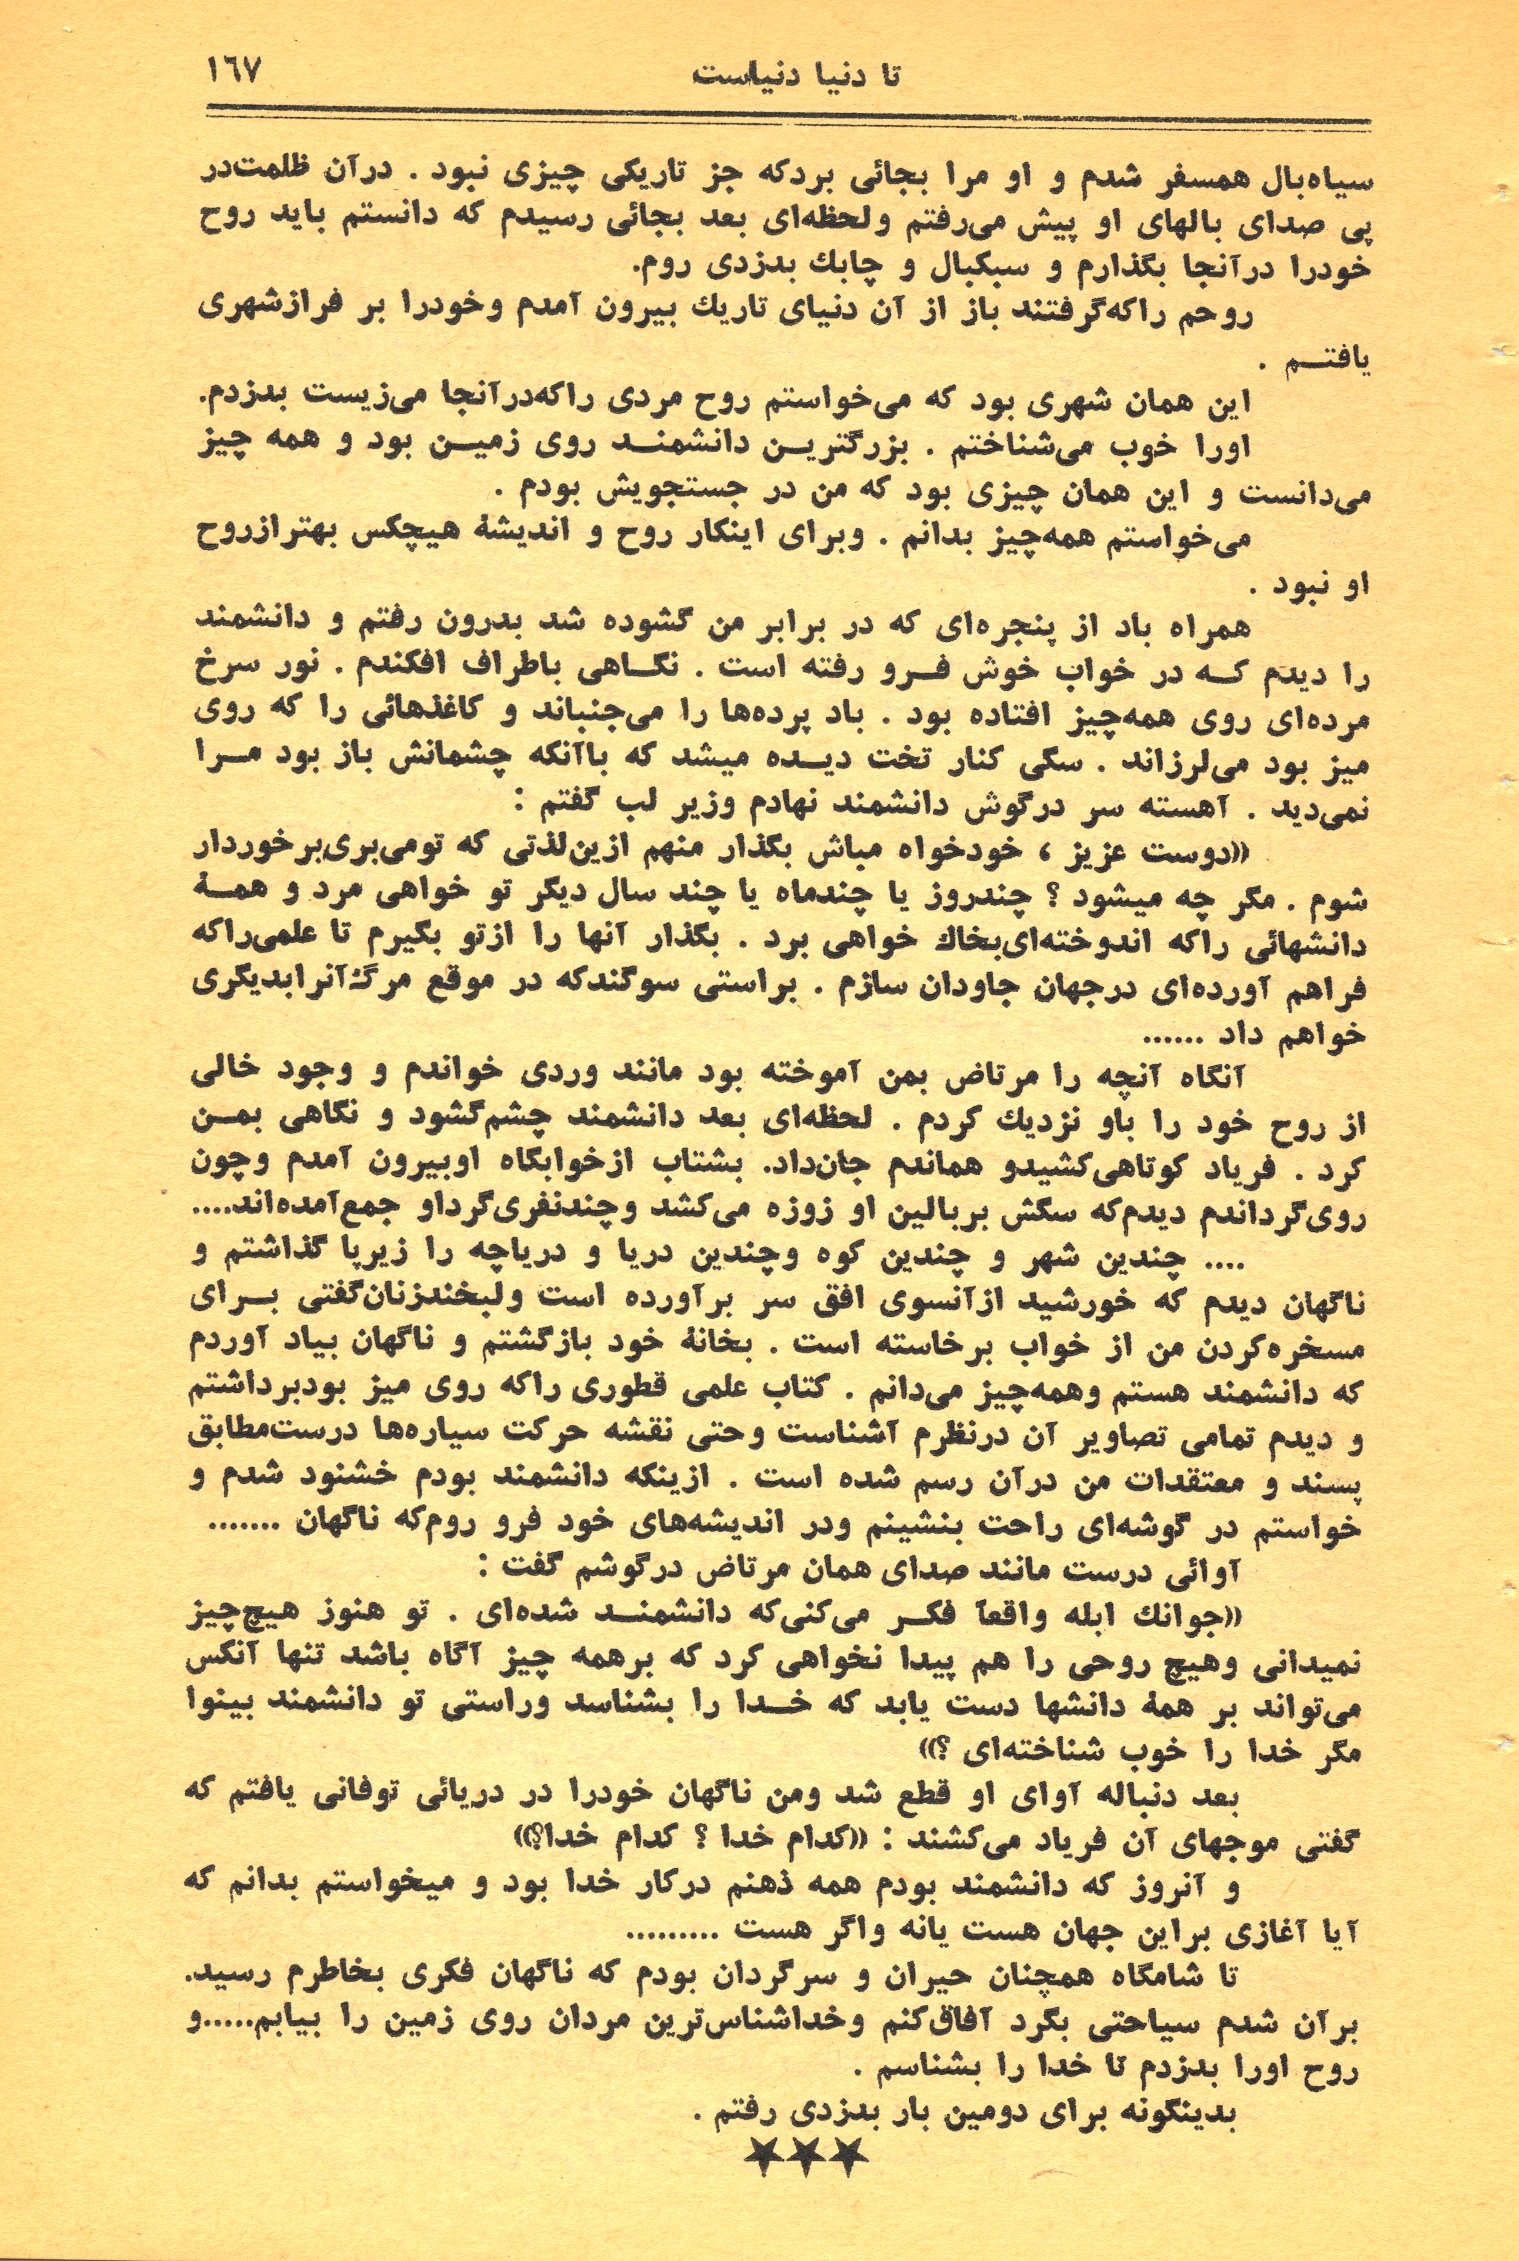 تا دنیا دنیاست
۱۶۷
سیاه‌بال همسفر شدم و او مرا بجائی بردکه جز تاریکی چیزی نبود . درآن ظلمت‌در
پی صدای بالهای او پیش می‌رفتم ولحظه‌ای بعد بجائی رسیدم که دانستم باید روح
خودرا درآنجا بگذارم و سبکبال و چابك بدزدی روم.
روحم راکه‌گرفتند باز از آن دنیای تاریك بیرون آمدم وخودرا بر فرازشهری
یافتـــم .
این همان شهری بود که می‌خواستم روح مردی راکه‌درآنجا می‌زیست بدزدم.
اورا خوب می‌شناختم . بزرگتریــن دانشمنــد روی زمیــن بود و همه چیز
می‌دانست و این همان چیزی بود که من در جستجویش بودم .
می‌خواستم همه‌چیز بدانم . وبرای اینکار روح و اندیشهٔ هیچکس بهترازروح
او نبود .
همراه باد از پنجره‌ای که در برابر من گشوده شد بدرون رفتم و دانشمند
را دیدم کــه در خواب خوش فــرو رفته است . نگــاهی باطراف افکندم . نور سرخ
مرده‌ای روی همه‌چیز افتاده بود . باد پرده‌ها را می‌جنباند و کاغذهائی را که روی
میز بود می‌لرزاند . سگی کنار تخت دیــده میشد که باآنکه چشمانش باز بود مــرا
نمی‌دید . آهسته سر درگوش دانشمند نهادم وزیر لب گفتم :
((دوست عزیز ، خودخواه مباش بگذار منهم ازین‌لذتی که تومی‌بری‌برخوردار
شوم . مگر چه میشود ؟ چندروز یا چندماه یا چند سال دیگر تو خواهی مرد و همــهٔ
دانشهائی راکه اندوخته‌ای‌بخاك خواهی برد . بگذار آنها را ازتو بگیرم تا علمی‌راکه
فراهم آورده‌ای درجهان جاودان سازم . براستی سوگندکه در موقع مرگ‌آنرابدیگری
خواهم داد ......
آنگاه آنچه را مرتاض بمن آموخته بود مانند وردی خواندم و وجود خالی
از روح خود را باو نزدیك کردم . لحظه‌ای بعد دانشمند چشم‌گشود و نگاهی بمــن
کرد . فریاد کوتاهی‌کشیدو هماندم جان‌داد. بشتاب ازخوابگاه اوبیرون آمدم وچون
روی‌گرداندم دیدم‌که سگش بربالین او زوزه می‌کشد وچندنفری‌گرداو جمع‌آمده‌اند....
.... چندین شهر و چندین کوه وچندین دریا و دریاچه را زیرپا گذاشتم و
ناگهان دیدم که خورشید ازآنسوی افق سر برآورده است ولبخندزنان‌گفتی بــرای
مسخره‌کردن من از خواب برخاسته است . بخانهٔ خود بازگشتم و ناگهان بیاد آوردم
که دانشمند هستم وهمه‌چیز می‌دانم . کتاب علمی قطوری راکه روی میز بودبرداشتم
و دیدم تمامی تصاویر آن درنظرم آشناست وحتی نقشه حرکت سیاره‌ها درست‌مطابق
پسند و معتقدات من درآن رسم شده است . ازینکه دانشمند بودم خشنود شدم و
خواستم در گوشه‌ای راحت بنشینم ودر اندیشه‌های خود فرو روم‌که ناگهان .......
آوائی درست مانند صدای همان مرتاض درگوشم گفت :
((جوانك ابله واقعآ فکــر می‌کنی‌که دانشمنــد شده‌ای . تو هنوز هیچ‌چیز
نمیدانی وهیچ روحی را هم پیدا نخواهی کرد که برهمه چیز آگاه باشد تنها آنکس
می‌تواند بر همهٔ دانشها دست یابد که خــدا را بشناسد وراستی تو دانشمند بینوا
مگر خدا را خوب شناخته‌ای ؟))
بعد دنباله آوای او قطع شد ومن ناگهان خودرا در دریائی توفانی یافتم که
گفتی موجهای آن فریاد می‌کشند : ((کدام خدا ؟ کدام خدا؟))
و آنروز که دانشمند بودم همه ذهنم درکار خدا بود و میخواستم بدانم که
آیا آغازی براین جهان هست یانه واگر هست .........
تا شامگاه همچنان حیران و سرگردان بودم که ناگهان فکری بخاطرم رسید.
برآن شدم سیاحتی بگرد آفاق‌کنم وخداشناس‌ترین مردان روی زمین را بیابم.....و
روح اورا بدزدم تا خدا را بشناسم .
بدینگونه برای دومین بار بدزدی رفتم .
★★★